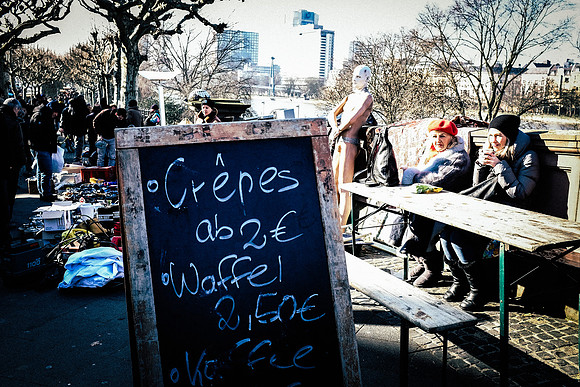 Crêpes
ab 2€
Waffel
2,50€
Kaffee